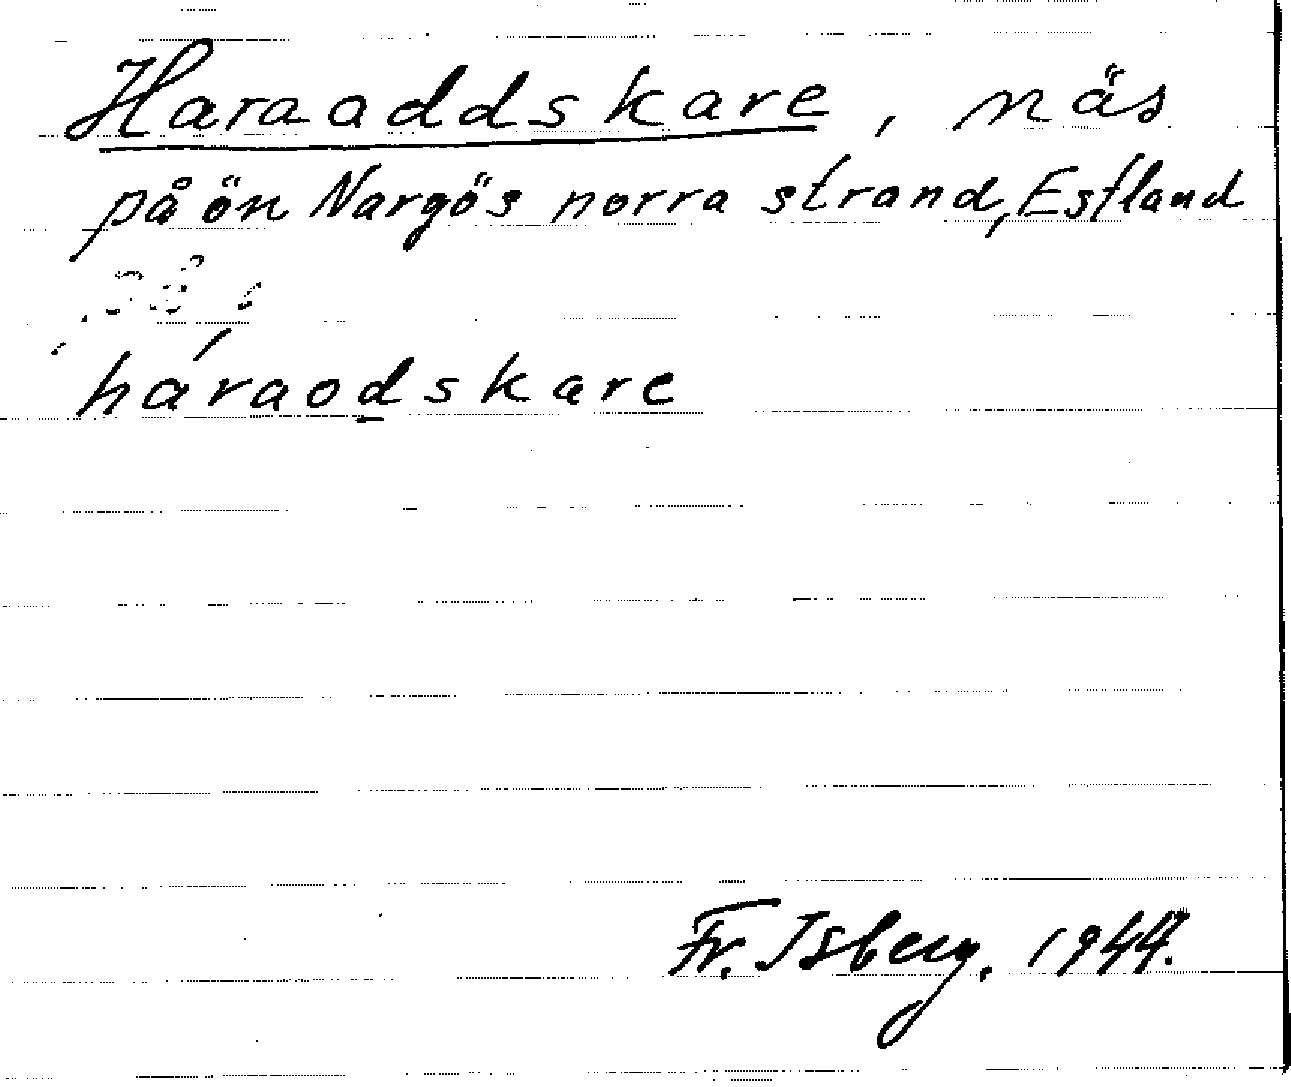 Haraaddskare, näs
på ön Nargös norra strand, Estland
háraodskare
Fr. Isberg. 1944.